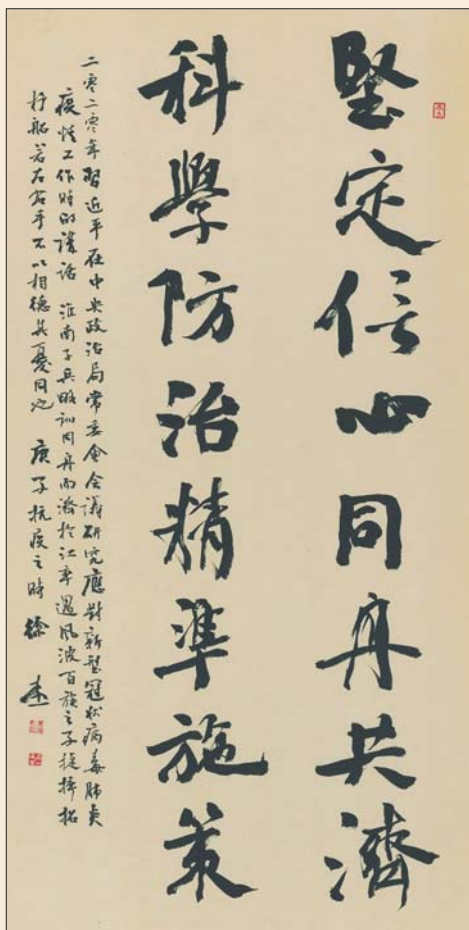 堅定信心同舟共濟
科學防治精準施策
二零二零年習近平在中央政治局常委會會議研究應對新型冠狀病毒肺炎
疫情工作時的講話 淮南子兵略訓同舟而濟於江卒遇風波百族之子捷捽招
杼船若左右手不以相德其憂同也 庚子抗疫之時